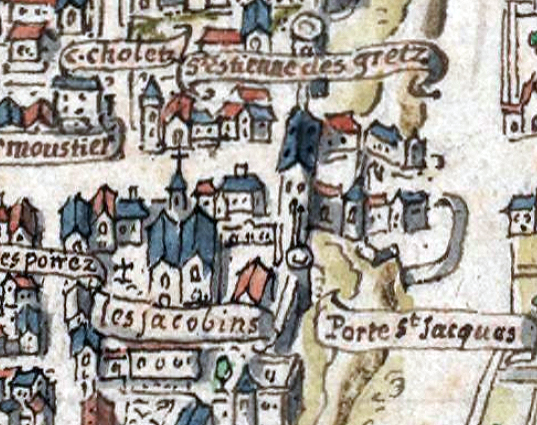 c. choletz
St Estienne des gretz
moustier
es porrez
les Jacobins
Porte St Jacques